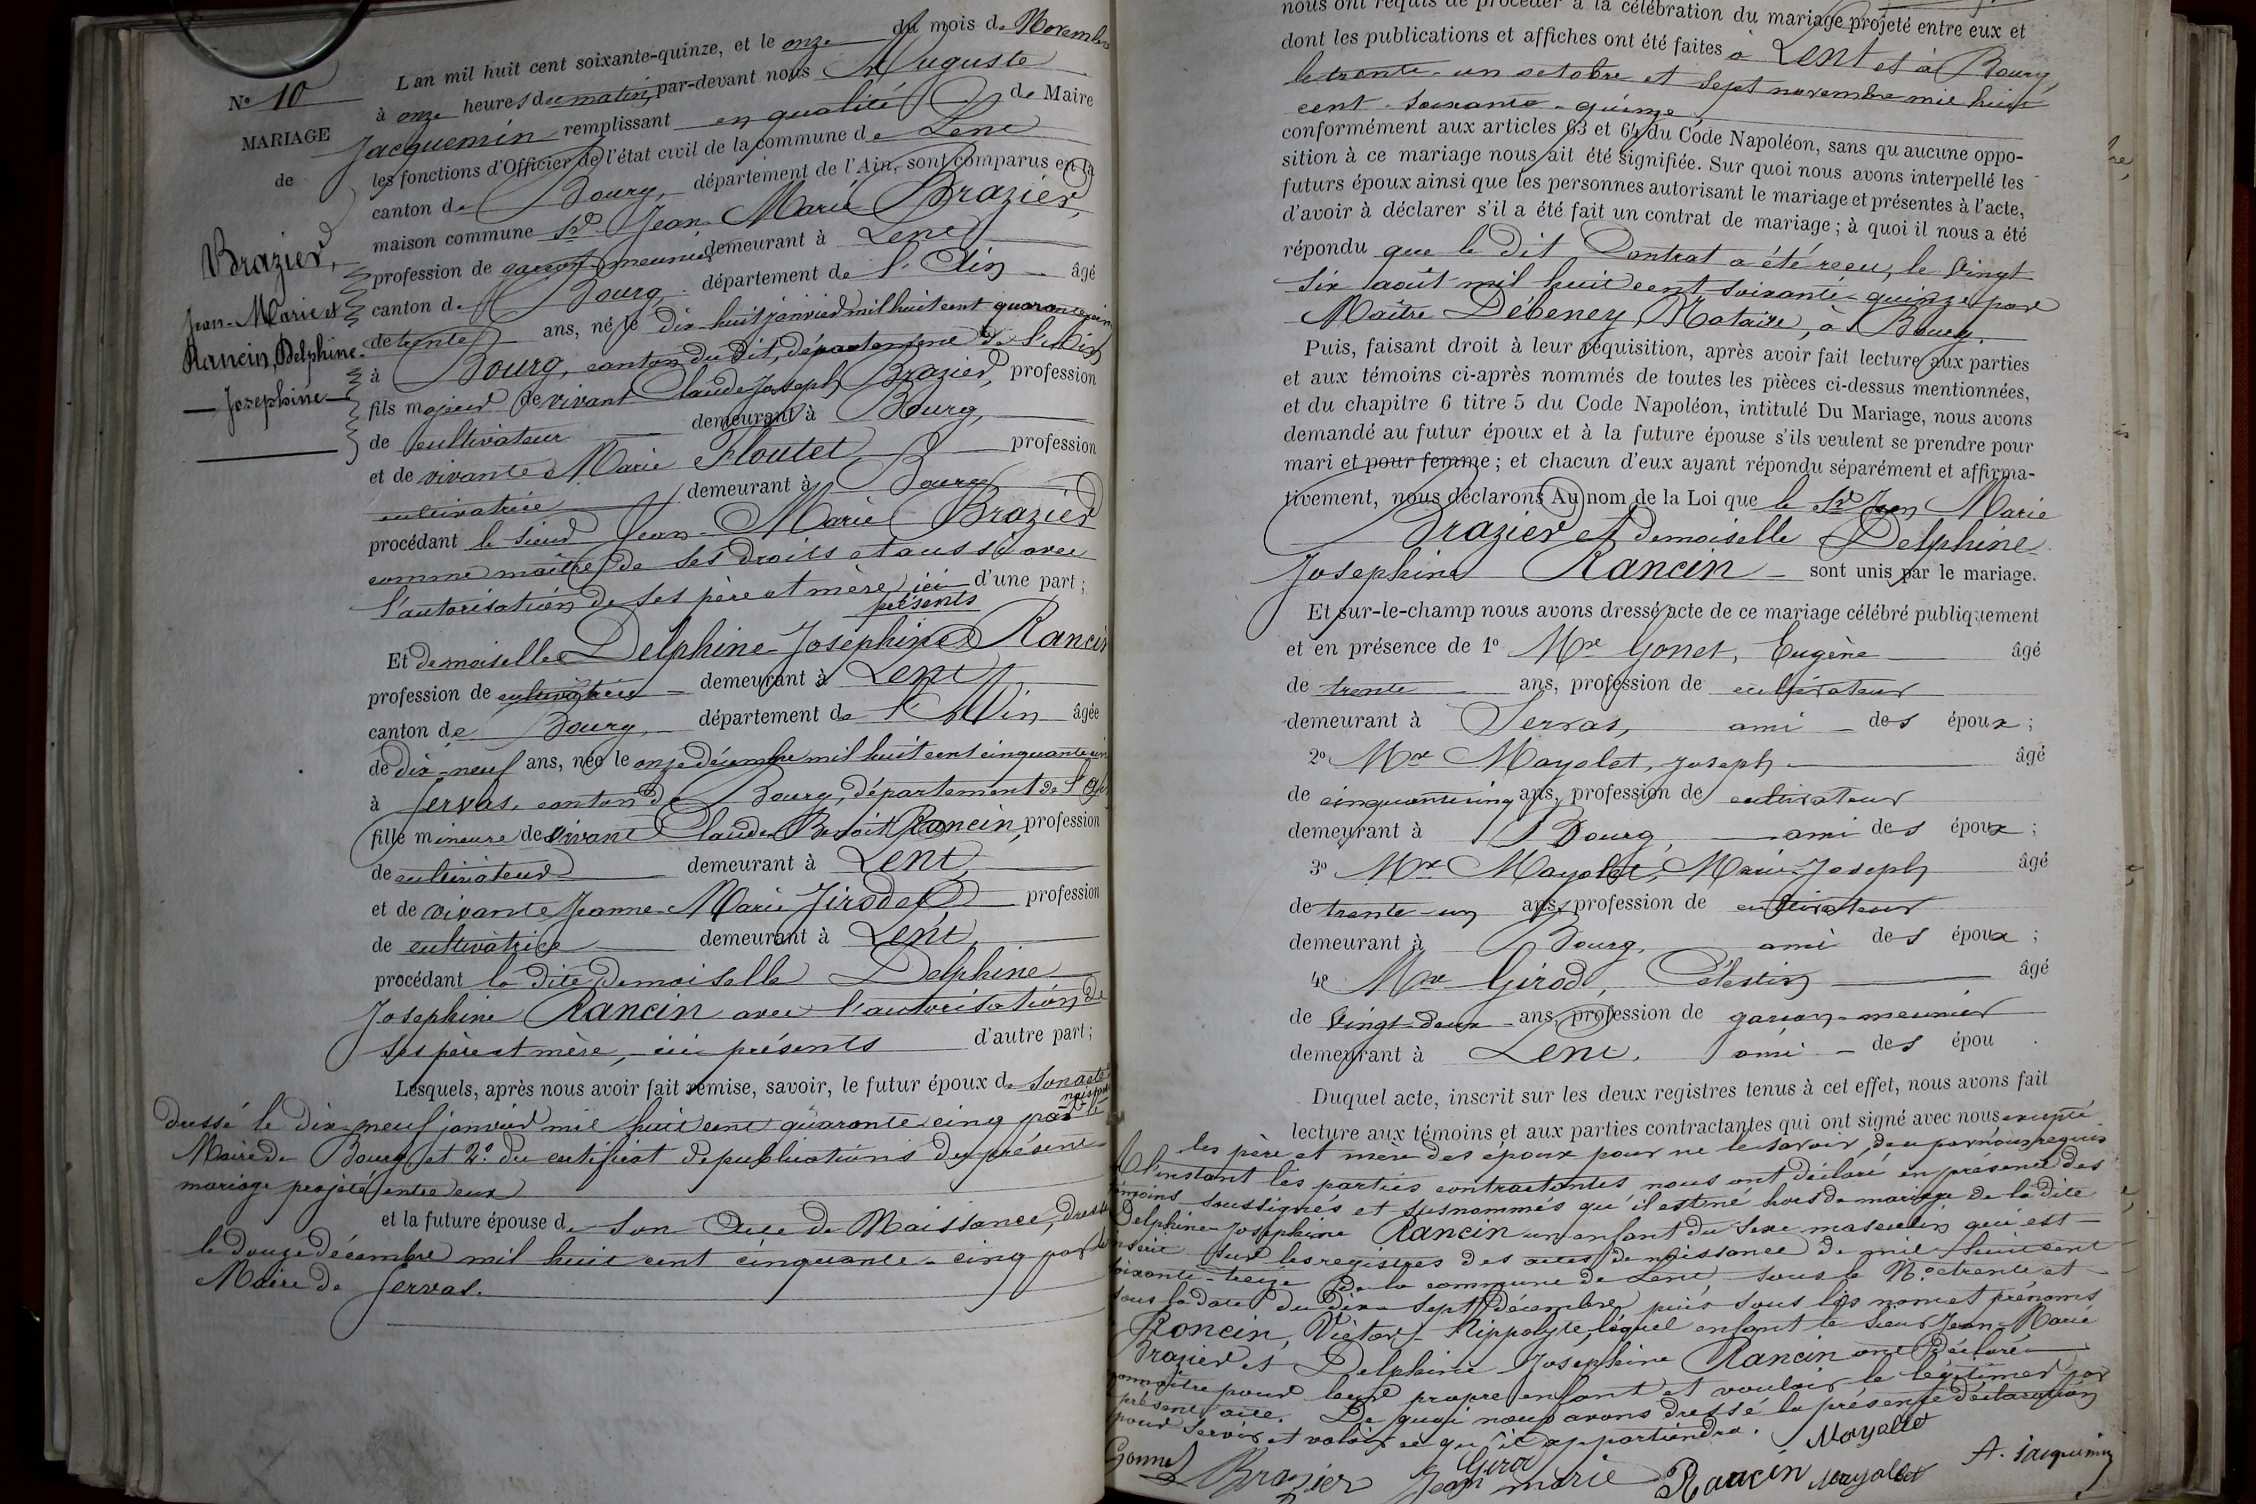 L'an mil huit cent soixante-quinze, et le onze du mois de Novembre
à onze heures du matin, par-devant nous Auguste
Jacquemin remplissant en qualité de Maire
les fonctions d'Officier de l'état civil de la commune de Lent
canton de Bourg, département de l'Ain, sont comparus en la
maison commune Sr. Jean-Marie Brazier,
profession de garçon-meunier demeurant à Lent
canton de Bourg, département de l'Ain âgé
de trente ans, né le dix-huit janvier mil huit cent quarante cinq
à Bourg, canton du dit, département de l'Ain
fils majeur de vivant Claude Joseph Brazier, profession
de cultivateur demeurant à Bourg,
et de vivante Marie Floutet profession
cultivatrice demeurant à Bourg
procédant le sieur Jean-Marie Brazier
comme maître de ses droits et aussi avec
l'autorisation de ses père et mère, ici d'une part ;
présents
Et demoiselle Delphine Joséphine Rancin
profession de cultivatrice demeurant à Lent
canton de Bourg, département de l'Ain âgée
de dix-neuf ans, née le onze décembre mil huit cent cinquante cinq
à Servas, canton de Bourg, département de l'Ain
fille mineure de vivant Claude Benoit Rancin, profession
de cultivateur demeurant à Lent,
et de vivante Jeanne-Marie Jirodet profession
de cultivatrice demeurant à Lent,
procédant la dite demoiselle Delphine
Josephine Rancin avec l'autorisation de
ses père et mère, ici présents d'autre part ;
Lesquels, après nous avoir fait remise, savoir, le futur époux de son acte de
naissance
dressé le dix-neuf janvier mil huit cent quarante cinq par le
Maire de Bourg, et 2° du certificat de publications du présent
mariage projeté entre eux
et la future épouse de son Acte de Naissance, dressé
le douze décembre mil huit cent cinquante-cinq par le
Maire de Servas.
N° 10
MARIAGE
de
Brazier,
Jean-Marie et
Rancin, Delphine-
Josephine
nous ont requis de procéder à la célébration du mariage projeté entre eux et
dont les publications et affiches ont été faites à Lent et à Bourg,
le trente-un octobre et sept novembre mil huit
cent-soixante-quinze
conformément aux articles 63 et 64 du Code Napoléon, sans qu'aucune oppo-
sition à ce mariage nous ait été signifiée. Sur quoi nous avons interpellé les
futurs époux ainsi que les personnes autorisant le mariage et présentes à l'acte,
d'avoir à déclarer s'il a été fait un contrat de mariage ; à quoi il nous a été
répondu que le dit Contrat a été reçu, le vingt
six août mil huit cent soixante-quinze par
Maître Débeney, Notaire, à Bourg.
Puis, faisant droit à leur réquisition, après avoir fait lecture aux parties
et aux témoins ci-après nommés de toutes les pièces ci-dessus mentionnées,
et du chapitre 6 titre 5 du Code Napoléon, intitulé Du Mariage, nous avons
demandé au futur époux et à la future épouse s'ils veulent se prendre pour
mari et pour femme ; et chacun d'eux ayant répondu séparément et affirma-
tivement, nous déclarons Au nom de la Loi que le Sr Jean Marie
Brazier et demoiselle Delphine
Josephine Rancin sont unis par le mariage.
Et sur-le-champ nous avons dressé acte de ce mariage célébré publiquement
et en présence de 1° Mr Gonet, Eugène âgé
de trente ans, profession de cultivateur
demeurant à Servas, ami des époux ;
2° Mr Mayolet, Joseph âgé
de cinquante cinq ans, profession de cultivateur
demeurant à Bourg, ami des époux ;
3° Mr Mayolet, Marie-Joseph âgé
de trente-un ans, profession de cultivateur
demeurant à Bourg, ami des époux ;
4° Mr Girod, Célestin âgé
de vingt-deux ans, profession de garçon-meunier
demeurant à Lent. ami des épou
Duquel acte, inscrit sur les deux registres tenus à cet effet, nous avons fait
lecture aux témoins et aux parties contractantes qui ont signé avec nous excepté
les père et mère des époux pour ne le savoir, de ce par nous requis
A l'instant les parties contractantes nous ont déclaré en présence des
témoins soussignés et susnommés qu'il est né hors de mariage de la dite
Delphine-Josephine Rancin un enfant du sexe masculin qui est
inscrit sur les registres des actes de naissance de mil huit cent
soixante-treize de la commune de Lent, sous le N° trente, et
sous la date du dix-sept décembre, puis sous les nom et prénoms
Rancin, Victor-Hippolyte, lequel enfant le sieur Jean-Marie
Brazier et Delphine Josephine Rancin ont déclaré
connaître pour leur propre enfant et vouloir le légitimer par
présent acte. De quoi nous avons dressé la présente déclaration
pour servir et valoir ce qu'il appartiendra.
Mayollet
Gonnet
Brazier Jean marie
Girod
Rancin
Mayollet
A. Jacquemin